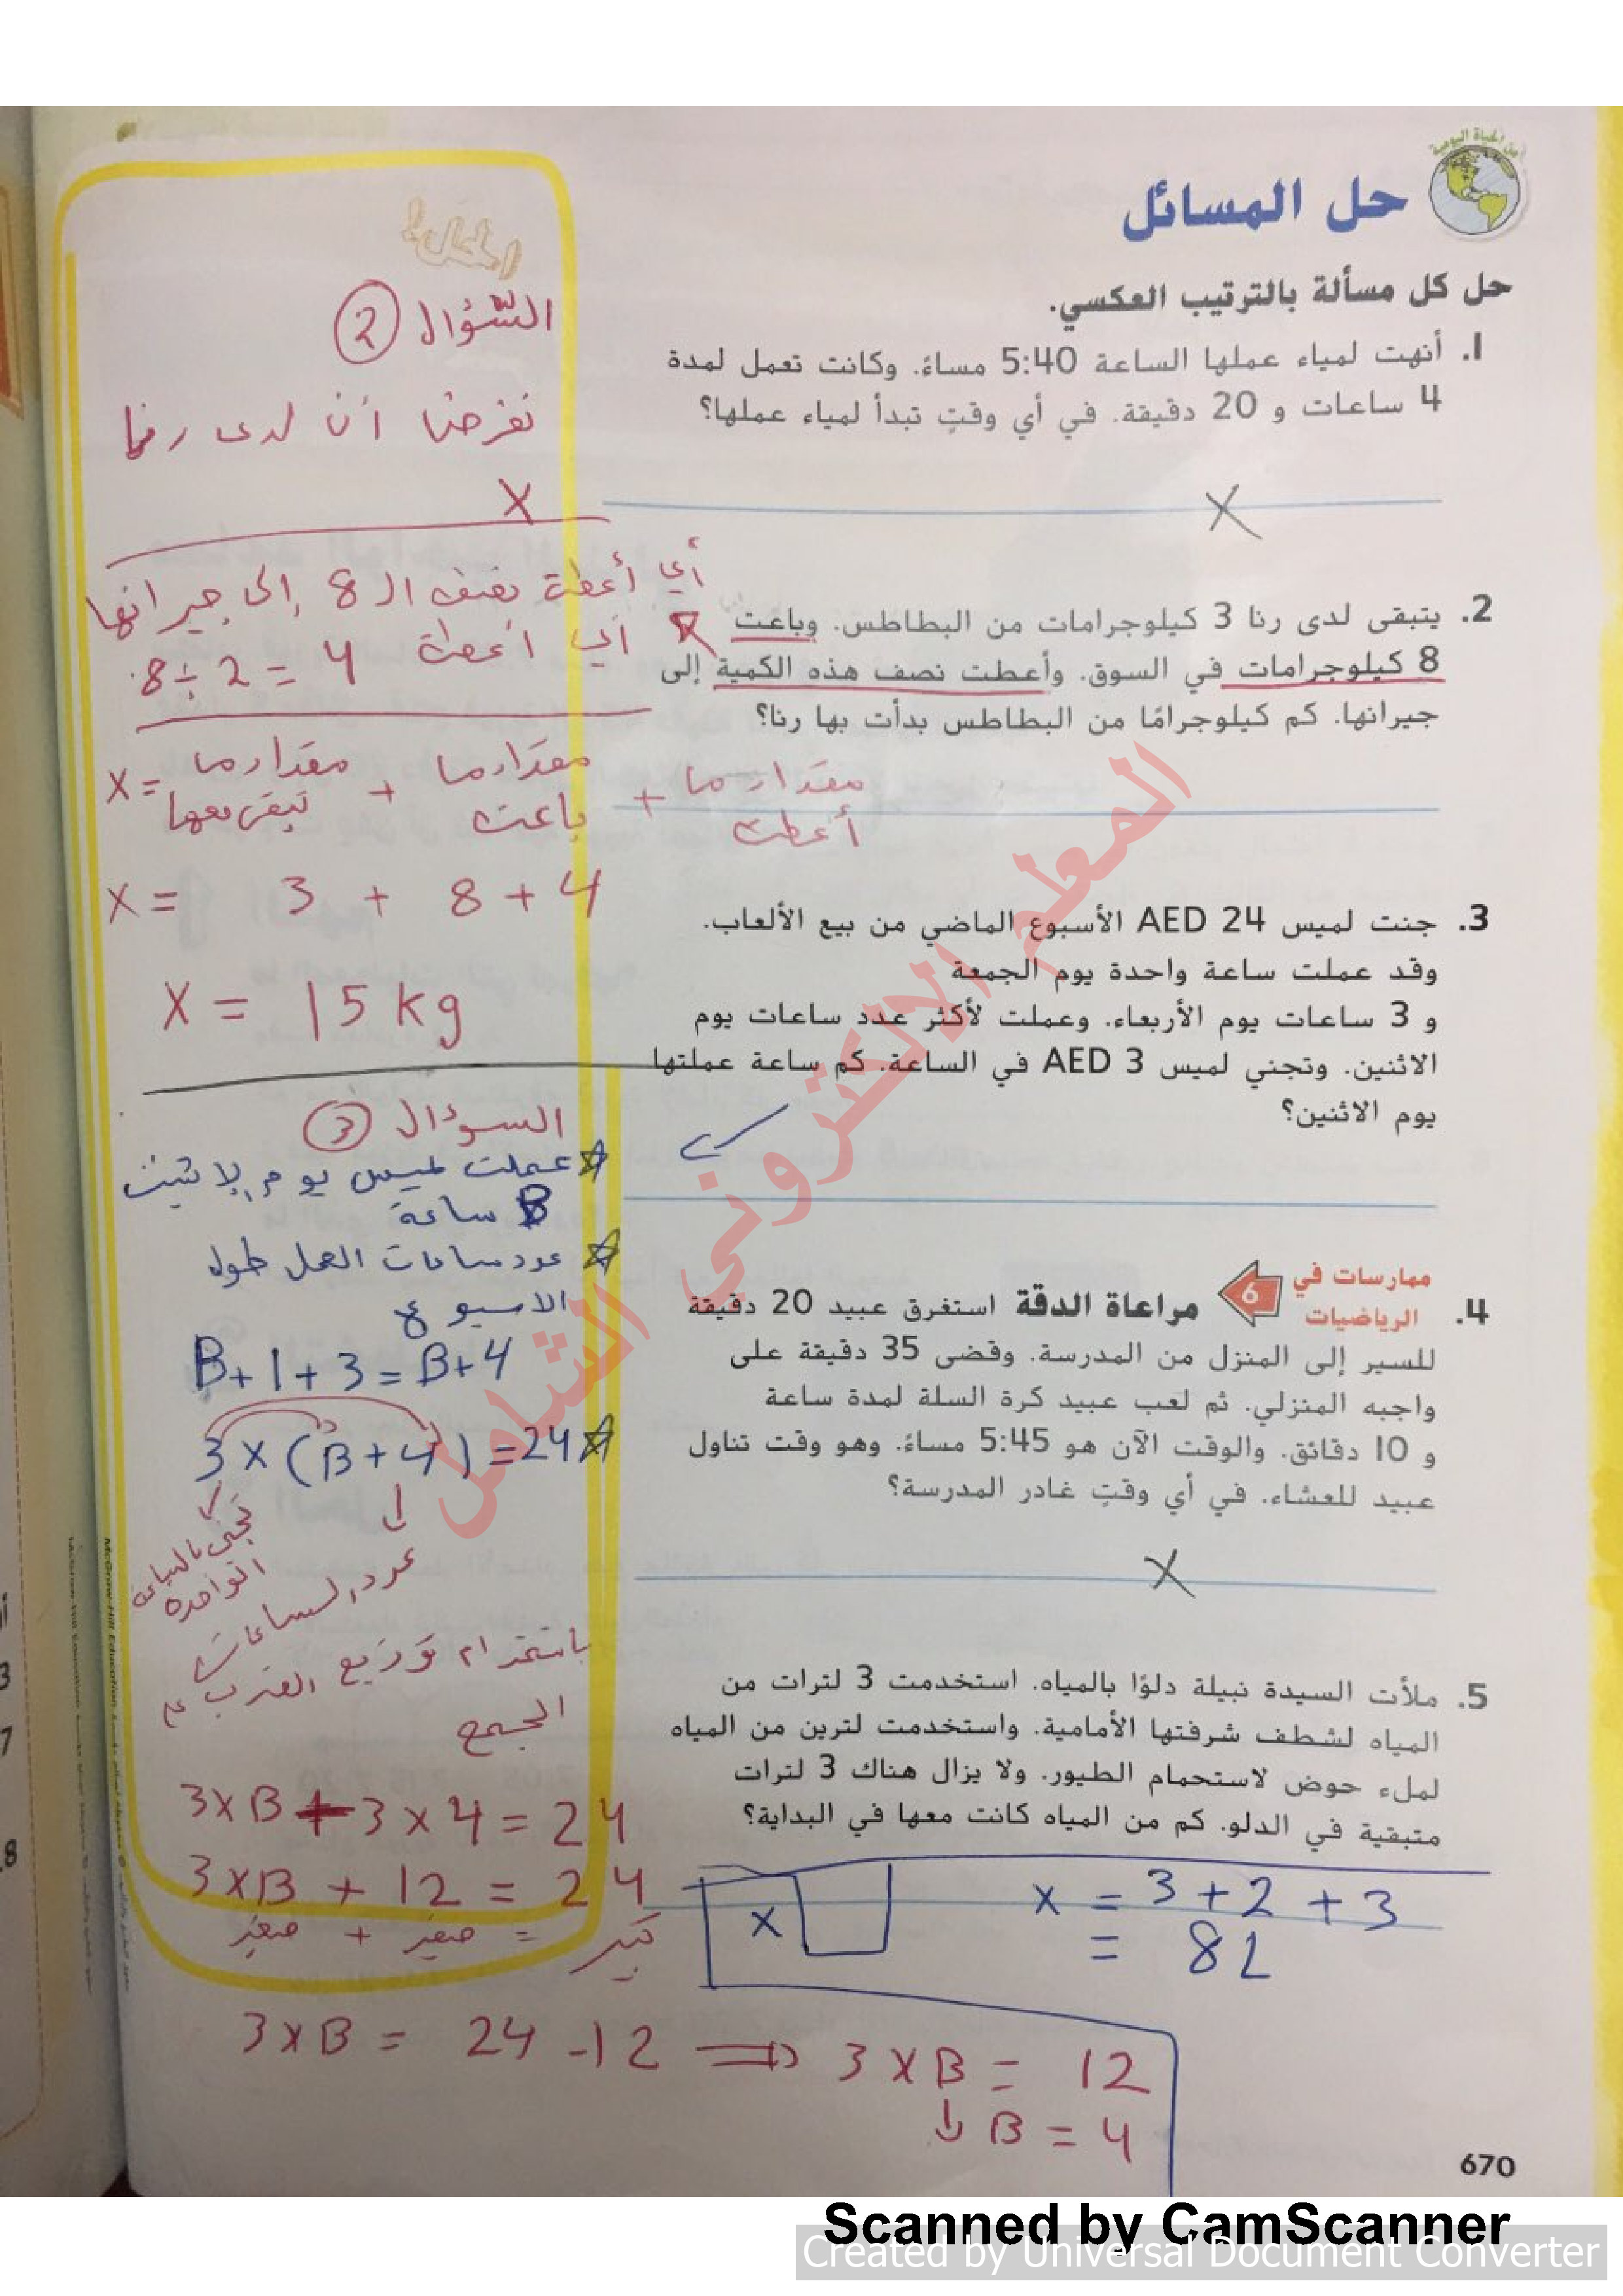 من الحياة اليومية
حل المسائل
حل كل مسألة بالترتيب العكسي.
1. أنهت لمياء عملها الساعة 5:40 مساءً. وكانت تعمل لمدة
4 ساعات و 20 دقيقة. في أي وقتٍ تبدأ لمياء عملها؟
X
2. يتبقى لدى رنا 3 كيلوجرامات من البطاطس. وباعت
8 كيلوجرامات في السوق. وأعطت نصف هذه الكمية إلى
جيرانها. كم كيلوجرامًا من البطاطس بدأت بها رنا؟
3. جنت لميس AED 24 الأسبوع الماضي من بيع الألعاب.
وقد عملت ساعة واحدة يوم الجمعة
و 3 ساعات يوم الأربعاء. وعملت لأكثر عدد ساعات يوم
الاثنين. وتجني لميس AED 3 في الساعة. كم ساعة عملتها
يوم الاثنين؟
4. ممارسات في الرياضيات 6 مراعاة الدقة استغرق عبيد 20 دقيقة
للسير إلى المنزل من المدرسة. وقضى 35 دقيقة على
واجبه المنزلي. ثم لعب عبيد كرة السلة لمدة ساعة
و 10 دقائق. والوقت الآن هو 5:45 مساءً. وهو وقت تناول
عبيد للعشاء. في أي وقتٍ غادر المدرسة؟
X
5. ملأت السيدة نبيلة دلوًا بالمياه. استخدمت 3 لترات من
المياه لشطف شرفتها الأمامية. واستخدمت لترين من المياه
لملء حوض لاستحمام الطيور. ولا يزال هناك 3 لترات
متبقية في الدلو. كم من المياه كانت معها في البداية؟
x
x = 3 + 2 + 3
= 8L
الحل
السؤال 2
نفرض أن لدى رنا
X
أي أعطت نصف الـ 8 إلى جيرانها
أي أعطت 8 ÷ 2 = 4
X = مقدار ما تبقى معها + مقدار ما باعت + مقدار ما أعطت
X = 3 + 8 + 4
X = 15 kg
السؤال 3
عملت لميس يوم الاثنين
B ساعة
عدد ساعات العمل طول
الاسبوع
B + 1 + 3 = B + 4
3 x (B + 4) = 24
تجني بالساعة الواحدة
عدد الساعات
باستخدام توزيع الضرب على
الجمع
3 x B + 3 x 4 = 24
3 x B + 12 = 24
صغير + صغير = كبير
3 x B = 24 - 12 ⟹ 3 x B = 12
B = 4
المعلم الالكتروني الشامل
670
Scanned by CamScanner
Created by Universal Document Converter